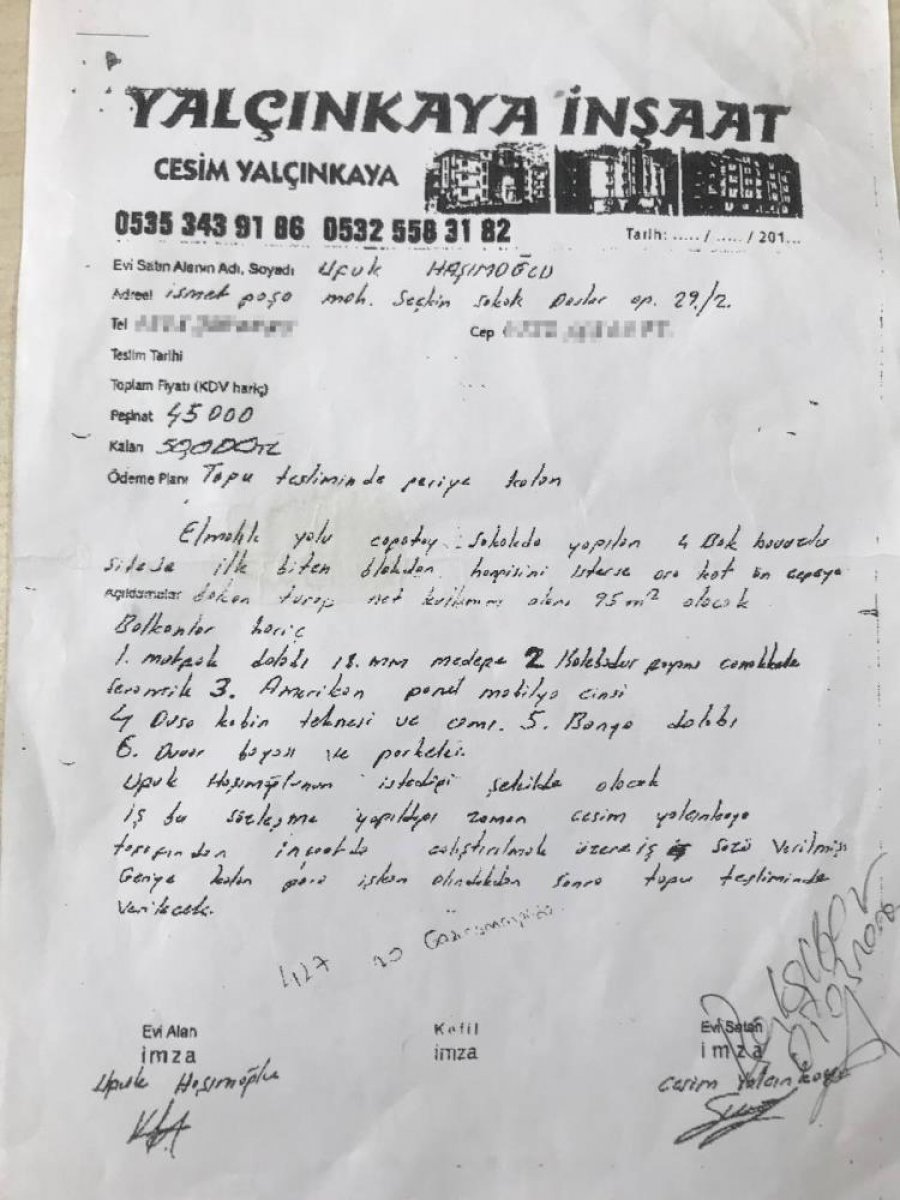 YALÇINKAYA İNŞAAT
CESİM YALÇINKAYA
0535 343 91 86 0532 558 31 82
Tarih: ..... / ..... / 201...
Evi Satın Alanın Adı, Soyadı Ufuk HAŞIMOĞLU
Adresi ismet paşa mah. Seçkin sokak Dostlar ap. 29./2.
Tel
Cep
Teslim Tarihi
Toplam Fiyatı (KDV hariç)
Peşinat 45000
Kalan 50,000TL
Ödeme Planı Tapu tesliminde geriye kalan
Elmalık yolu sokakda yapılan 4 Blok havuzlu
sitede ilk biten blokdan hangisini isterse ara kat ön cepeye
Açıklamalar bakan taraf net kullanım alanı 95 m² olacak
Balkonlar hariç
1. mutfak dolabı 18.mm medepe 2 Kalebodur çanakkale
seramik 3. Amerikan panel mobilya cinsi
4 Duşa kabin teknesi ve camı. 5. Banyo dolabı
6. Duvar boyası ve parkeler.
Ufuk Haşımoğlunun istediği şekilde olacak
iş bu sözleşme yapıldığı zaman cesim yalçınkaya
tarafından inşaatda çalıştırılmak üzere iş sözü verilmiş
Geriye kalan para iskan alındıkdan sonra tapu tesliminde
verilecek.
427
Evi Alan
imza
Ufuk Haşımoğlu
Kefil
imza
Evi Satan
imza
Cesim Yalçınkaya